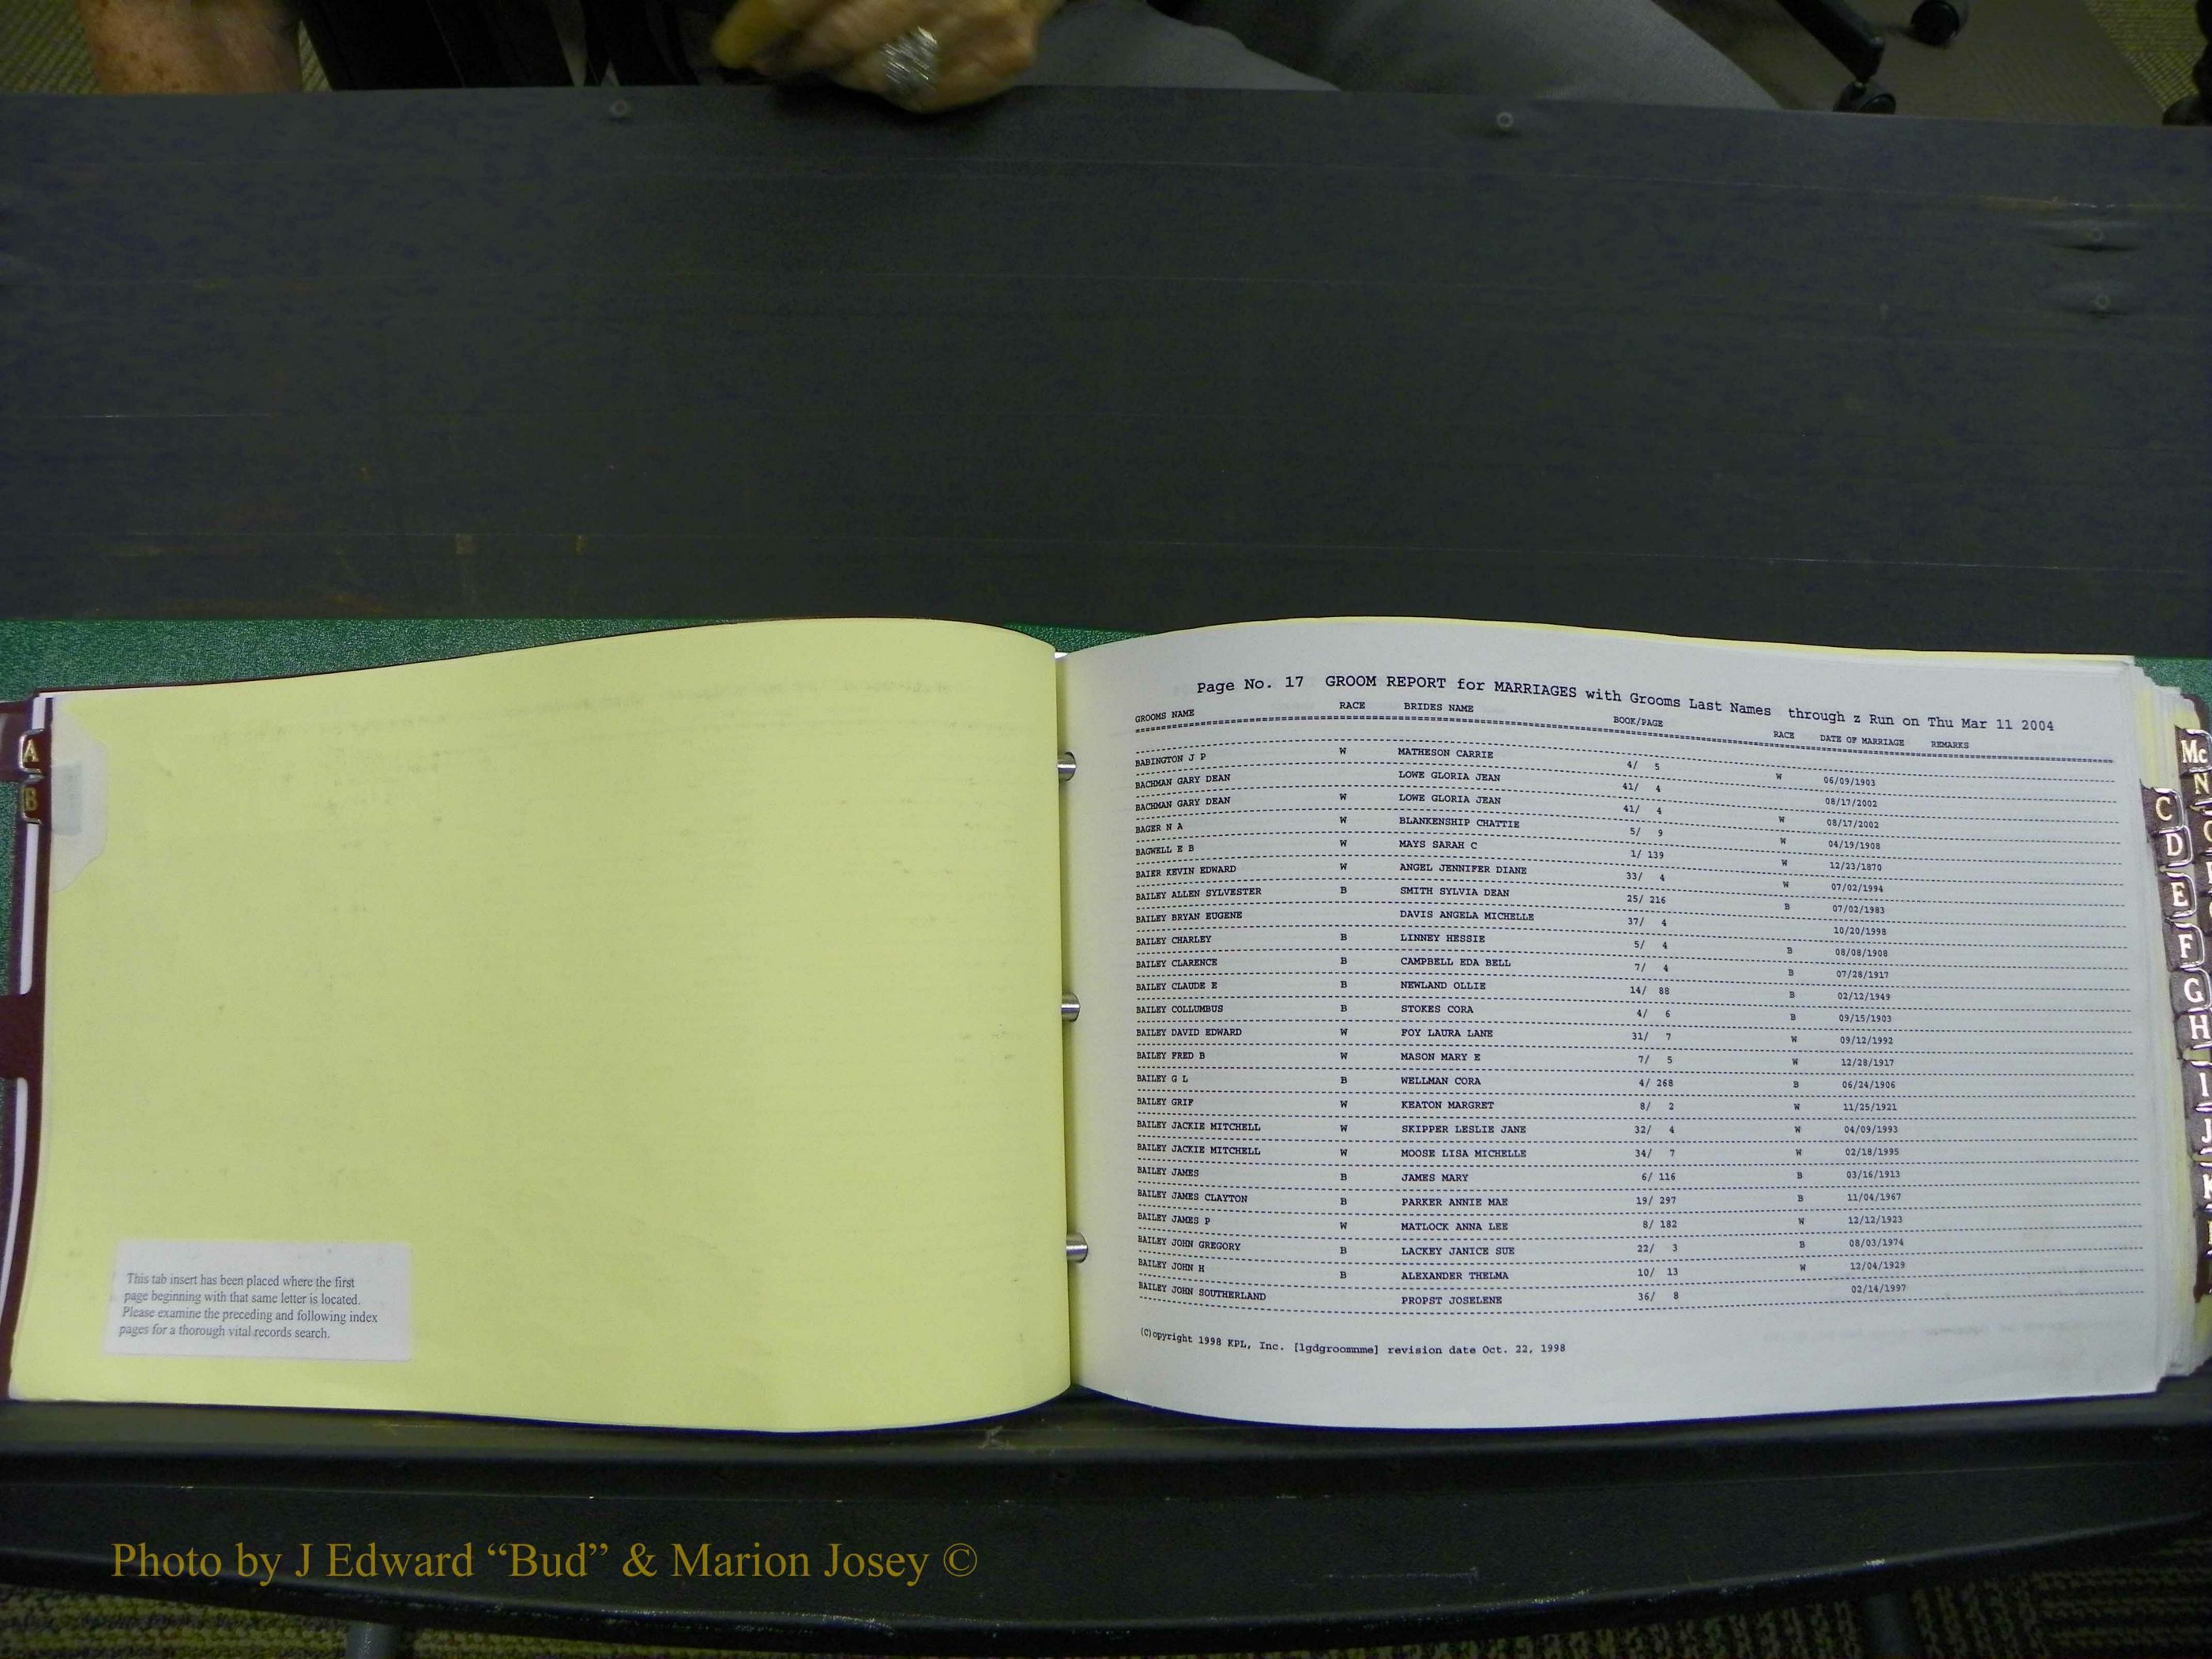 A
B
This tab insert has been placed where the first
page beginning with that same letter is located.
Please examine the preceding and following index
pages for a thorough vital records search.
Page No. 17 GROOM REPORT for MARRIAGES with Grooms Last Names through z Run on Thu Mar 11 2004
GROOMS NAME RACE BRIDES NAME BOOK/PAGE RACE DATE OF MARRIAGE REMARKS
BABINGTON J P W MATHESON CARRIE 4/ 5 W 06/09/1903
BACHMAN GARY DEAN LOWE GLORIA JEAN 41/ 4 08/17/2002
BACHMAN GARY DEAN W LOWE GLORIA JEAN 41/ 4 W 08/17/2002
BAGER N A W BLANKENSHIP CHATTIE 5/ 9 W 04/19/1908
BAGWELL E B W MAYS SARAH C 1/ 139 W 12/23/1870
BAIER KEVIN EDWARD W ANGEL JENNIFER DIANE 33/ 4 W 07/02/1994
BAILEY ALLEN SYLVESTER B SMITH SYLVIA DEAN 25/ 216 B 07/02/1983
BAILEY BRYAN EUGENE DAVIS ANGELA MICHELLE 37/ 4 10/20/1998
BAILEY CHARLEY B LINNEY HESSIE 5/ 4 B 08/08/1908
BAILEY CLARENCE B CAMPBELL EDA BELL 7/ 4 B 07/28/1917
BAILEY CLAUDE E B NEWLAND OLLIE 14/ 88 B 02/12/1949
BAILEY COLLUMBUS B STOKES CORA 4/ 6 B 09/15/1903
BAILEY DAVID EDWARD W FOY LAURA LANE 31/ 7 W 09/12/1992
BAILEY FRED B W MASON MARY E 7/ 5 W 12/28/1917
BAILEY G L B WELLMAN CORA 4/ 268 B 06/24/1906
BAILEY GRIF W KEATON MARGRET 8/ 2 W 11/25/1921
BAILEY JACKIE MITCHELL W SKIPPER LESLIE JANE 32/ 4 W 04/09/1993
BAILEY JACKIE MITCHELL W MOOSE LISA MICHELLE 34/ 7 W 02/18/1995
BAILEY JAMES B JAMES MARY 6/ 116 B 03/16/1913
BAILEY JAMES CLAYTON B PARKER ANNIE MAE 19/ 297 B 11/04/1967
BAILEY JAMES P W MATLOCK ANNA LEE 8/ 182 W 12/12/1923
BAILEY JOHN GREGORY B LACKEY JANICE SUE 22/ 3 B 08/03/1974
BAILEY JOHN H B ALEXANDER THELMA 10/ 13 W 12/04/1929
BAILEY JOHN SOUTHERLAND PROPST JOSELENE 36/ 8 02/14/1997
(C)opyright 1998 KPL, Inc. [lgdgroomnme] revision date Oct. 22, 1998
C
D
E
F
G
H
I
J
K
Mc
N
Photo by J Edward “Bud” & Marion Josey ©